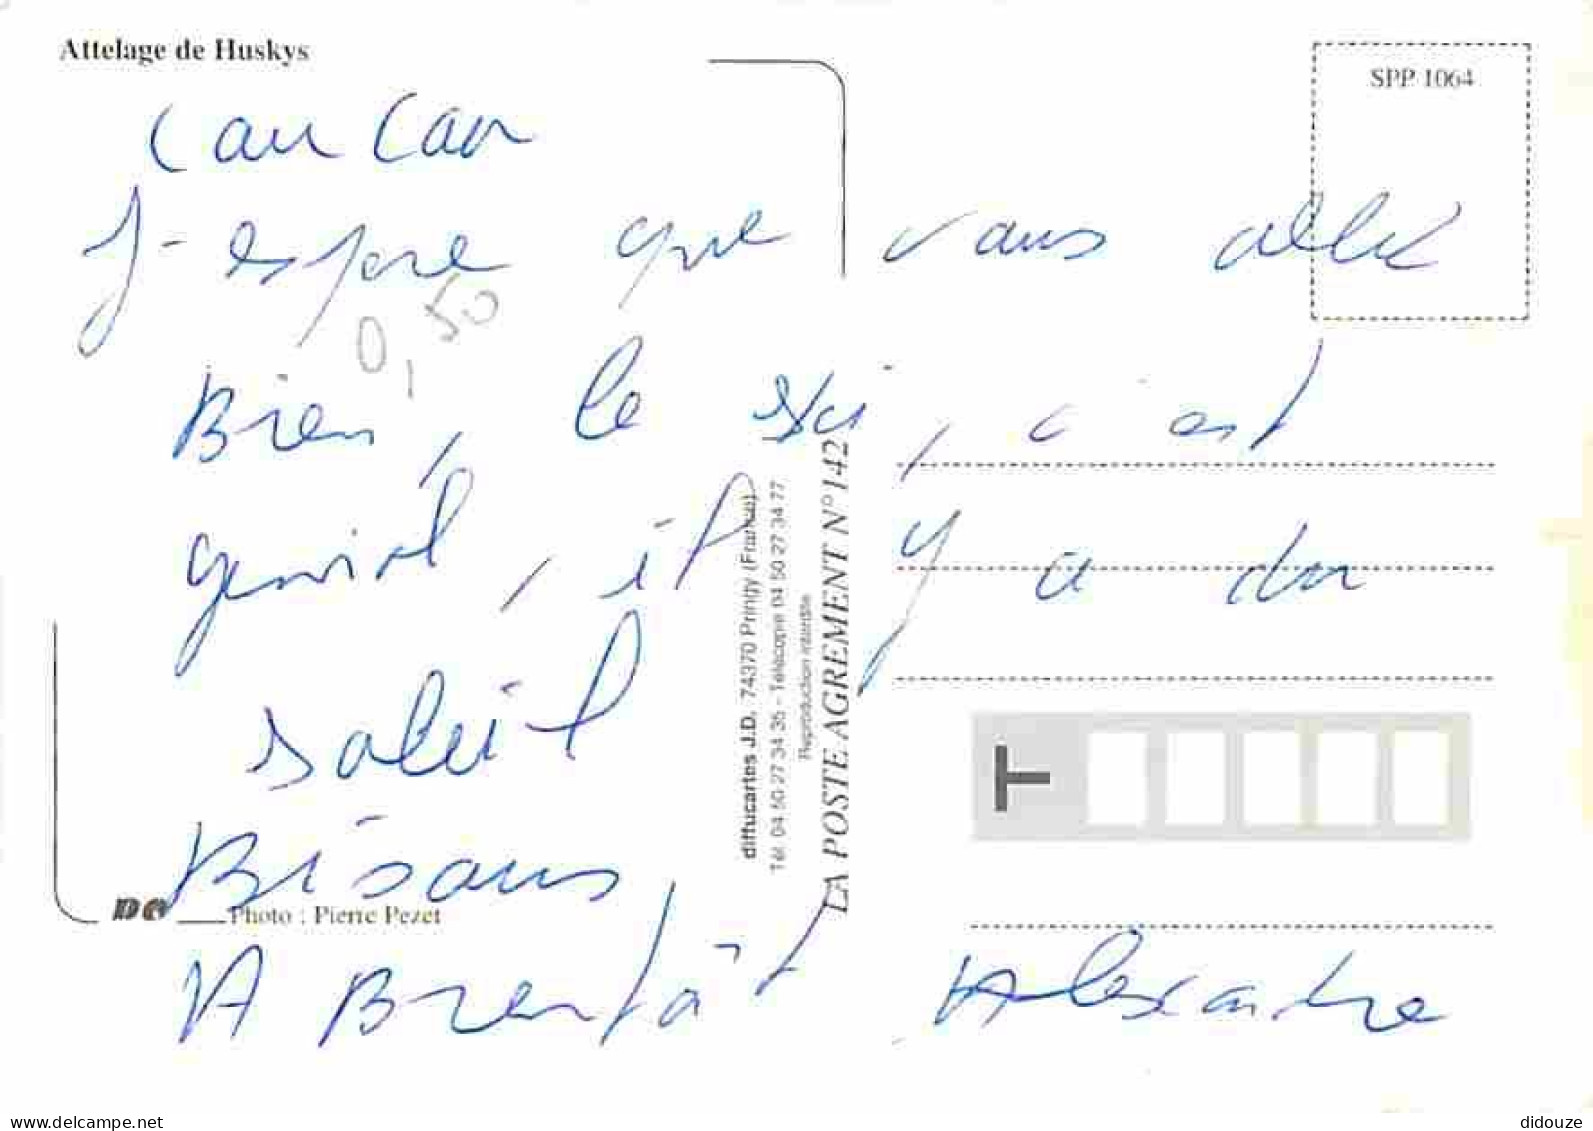 Attelage de Huskys
SPP 1064
Cou Cou
J'espere que vous allez
0,50
Bien, le ski, c'est
genial, il y a du
soleil
Bisous
A Bientôt Alexandre
diffucartes J.D. 74370 Pringy (France)
Tél. 04 50 27 34 35 - Télécopie 04 50 27 34 77
Reproduction interdite
LA POSTE AGREMENT N° 142
T
Photo : Pierre Pezet
www.delcampe.net
didouze